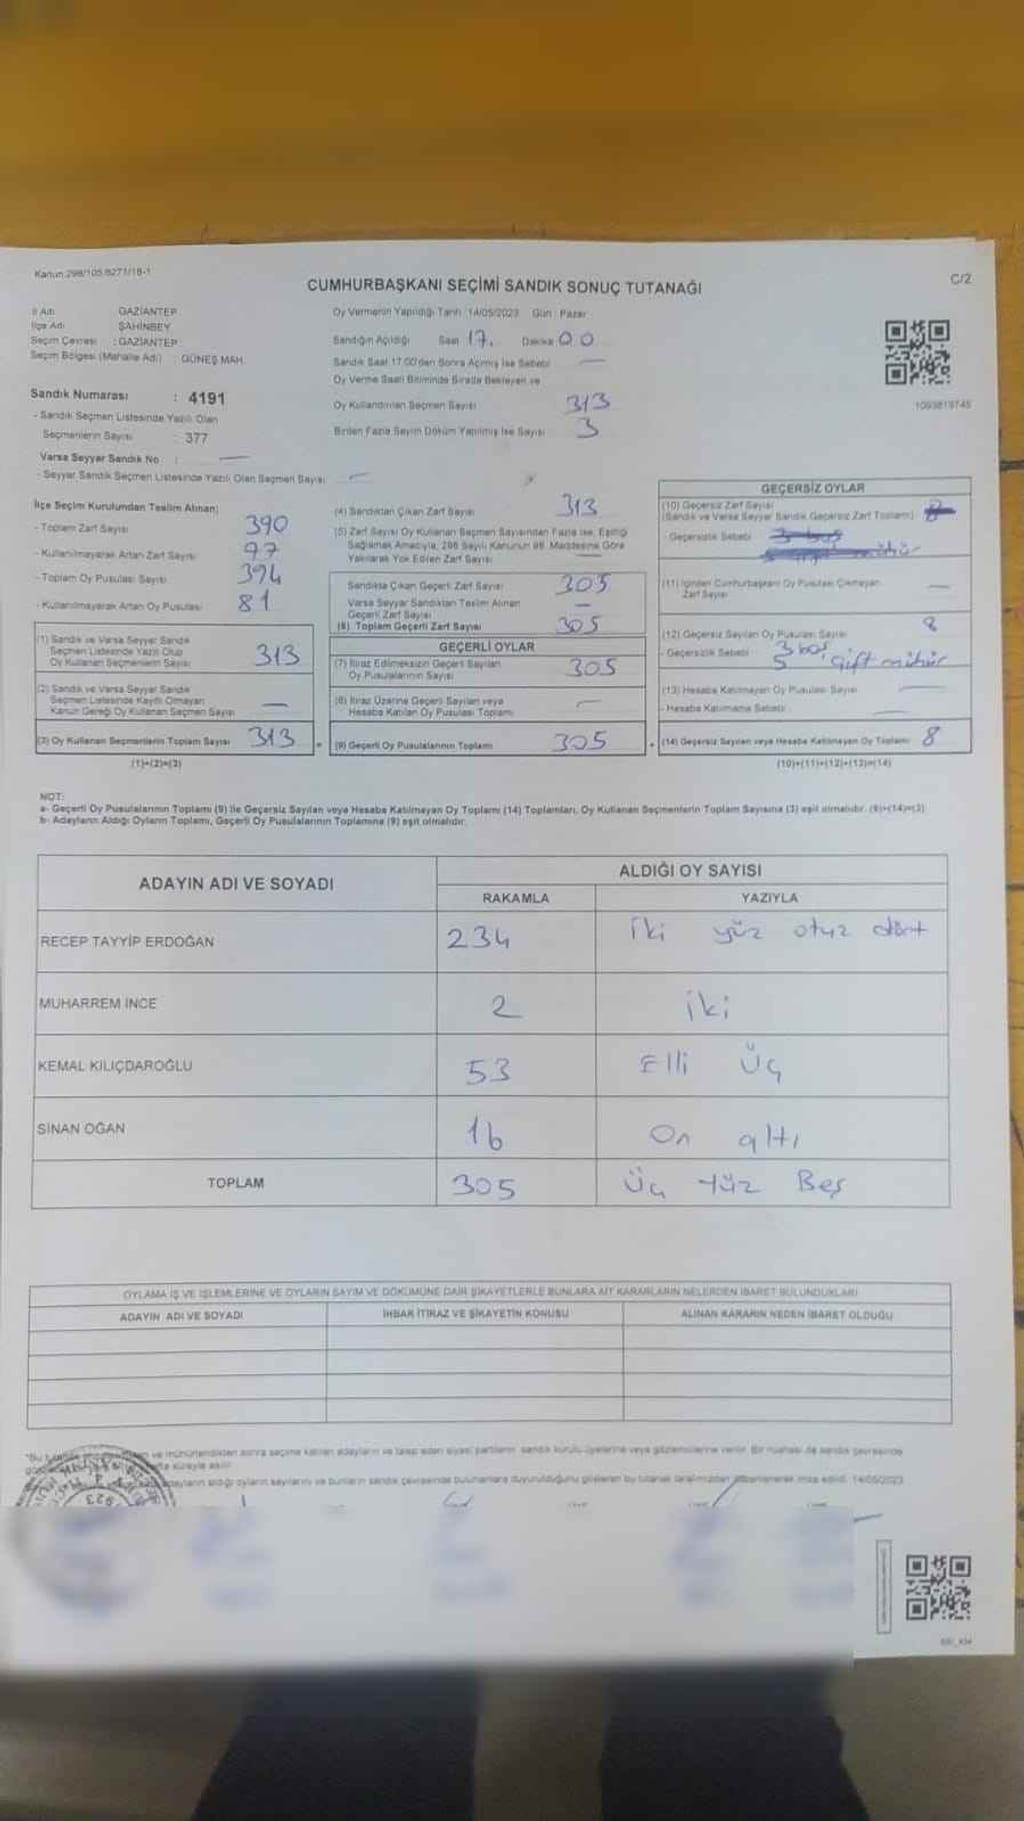 Kanun 298/105.6271/18-1
C/2
CUMHURBAŞKANI SEÇİMİ SANDIK SONUÇ TUTANAĞI
İl Adı GAZİANTEP
İlçe Adı ŞAHİNBEY
Seçim Çevresi : GAZİANTEP
Seçim Bölgesi (Mahalle Adı) : GÜNEŞ MAH.
Sandık Numarası : 4191
- Sandık Seçmen Listesinde Yazılı Olan
Seçmenlerin Sayısı : 377
Varsa Seyyar Sandık No : —
- Seyyar Sandık Seçmen Listesinde Yazılı Olan Seçmen Sayısı —
Oy Vermenin Yapıldığı Tarih 14/05/2023 Gün : Pazar
Sandığın Açıldığı Saat 17. Dakika 00
Sandık Saat 17.00'den Sonra Açılmış İse Sebebi —
Oy Verme Saati Bitiminde Sırada Bekleyen ve
Oy Kullandırılan Seçmen Sayısı 313
Birden Fazla Sayım Döküm Yapılmış İse Sayısı 3
1093819745
İlçe Seçim Kurulundan Teslim Alınan;
- Toplam Zarf Sayısı 390
- Kullanılmayarak Artan Zarf Sayısı 77
- Toplam Oy Pusulası Sayısı 394
- Kullanılmayarak Artan Oy Pusulası 81
(1) Sandık ve Varsa Seyyar Sandık
Seçmen Listesinde Yazılı Olup
Oy Kullanan Seçmenlerin Sayısı 313
(2) Sandık ve Varsa Seyyar Sandık
Seçmen Listesinde Kayıtlı Olmayan
Kanun Gereği Oy Kullanan Seçmen Sayısı —
(3) Oy Kullanan Seçmenlerin Toplam Sayısı 313
(1)+(2)=(3)
(4) Sandıktan Çıkan Zarf Sayısı 313
(5) Zarf Sayısı Oy Kullanan Seçmen Sayısından Fazla ise, Eşitliği
Sağlamak Amacıyla, 298 Sayılı Kanunun 98. Maddesine Göre
Yakılarak Yok Edilen Zarf Sayısı —
Sandıkta Çıkan Geçerli Zarf Sayısı 305
Varsa Seyyar Sandıktan Teslim Alınan
Geçerli Zarf Sayısı —
(6) Toplam Geçerli Zarf Sayısı 305
GEÇERLİ OYLAR
(7) İtiraz Edilmeksizin Geçerli Sayılan
Oy Pusulalarının Sayısı 305
(8) İtiraz Üzerine Geçerli Sayılan veya
Hesaba Katılan Oy Pusulası Toplamı —
(9) Geçerli Oy Pusulalarının Toplamı 305
GEÇERSİZ OYLAR
(10) Geçersiz Zarf Sayısı
(Sandık ve Varsa Seyyar Sandık Geçersiz Zarf Toplamı)
- Geçersizlik Sebebi 3 boş
mühür
(11) İçinden Cumhurbaşkanı Oy Pusulası Çıkmayan
Zarf Sayısı —
(12) Geçersiz Sayılan Oy Pusulası Sayısı 8
- Geçersizlik Sebebi 3 boş
5 çift mühür
(13) Hesaba Katılmayan Oy Pusulası Sayısı —
- Hesaba Katılmama Sebebi —
(14) Geçersiz Sayılan veya Hesaba Katılmayan Oy Toplamı 8
(10)+(11)+(12)+(13)=(14)
NOT:
a- Geçerli Oy Pusulalarının Toplamı (9) ile Geçersiz Sayılan veya Hesaba Katılmayan Oy Toplamı (14) Toplamları, Oy Kullanan Seçmenlerin Toplam Sayısına (3) eşit olmalıdır. (9)+(14)=(3)
b- Adayların Aldığı Oyların Toplamı, Geçerli Oy Pusulalarının Toplamına (9) eşit olmalıdır.
ADAYIN ADI VE SOYADI ALDIĞI OY SAYISI
RAKAMLA YAZIYLA
RECEP TAYYİP ERDOĞAN 234 İki yüz otuz dört
MUHARREM İNCE 2 iki
KEMAL KILIÇDAROĞLU 53 Elli Üç
SİNAN OĞAN 16 On altı
TOPLAM 305 Üç Yüz Beş
OYLAMA İŞ VE İŞLEMLERİNE VE OYLARIN SAYIM VE DÖKÜMÜNE DAİR ŞİKAYETLERLE BUNLARA AİT KARARLARIN NELERDEN İBARET BULUNDUKLARI
ADAYIN ADI VE SOYADI İHBAR İTİRAZ VE ŞİKAYETİN KONUSU ALINAN KARARIN NEDEN İBARET OLDUĞU
ve mühürlendikten sonra seçime katılan adayların ve talep eden siyasi partilerin sandık kurulu üyelerine veya gözlemcilerine verilir. Bir nüshası da sandık çevresinde
süreyle asılır.
adayların aldığı oyların sayılarını ve bunların sandık çevresinde bulunanlara duyurulduğunu gösteren bu tutanak tarafımızdan düzenlenerek imza edildi. 14/05/2023
923